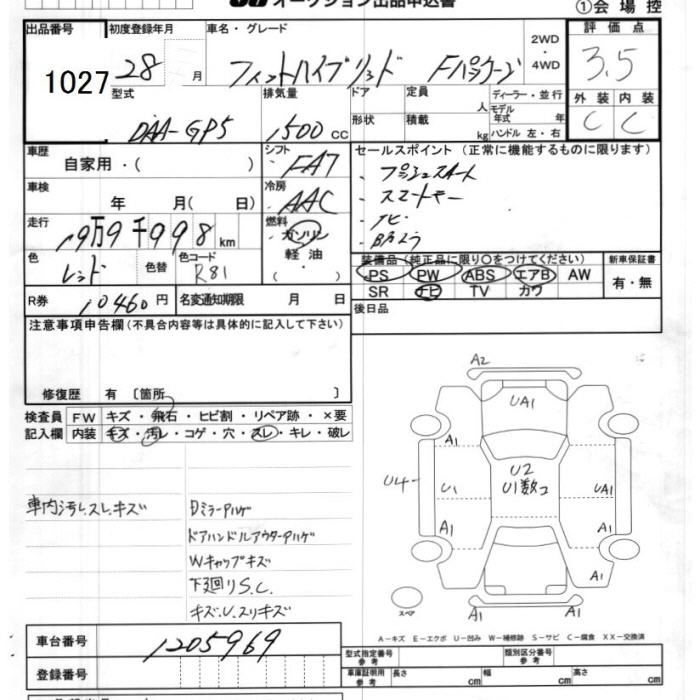 オークション出品申込書 ①会場控
出品番号 初度登録年月 車名・グレード 評価点
1027 28 月 フィットハイブリッド Fパッケージ 2WD ・4WD 3.5
型式 排気量 ドア 定員 ディーラー・並行 外装 内装
DAA-GP5 1500 CC 形状 積載 人 kg モデル年式 年 ハンドル 左・右 C C
車歴 自家用・( ) シフト FA7 セールスポイント (正常に機能するものに限ります)
車検 年 月( 日) 冷房 AAC ・プッシュスタート
・スマートキー
走行 19万9千998km 燃料 ガソリン 軽油 ・ナビ
色 レッド 色替 色コード R81 装備品(純正品に限り○をつけてください) 新車保証書
PS PW ABS エアB AW 有・無
SR ナビ TV カワ
R券 10460円 名変通知期限 月 日 後日品
注意事項申告欄(不具合内容等は具体的に記入して下さい)
修復歴 有 〔箇所 〕
検査員 FW キズ・飛石・ヒビ割・リペア跡・×要
記入欄 内装 キズ・汚レ・コゲ・穴・スレ・キレ・破レ
A2
UA1
A1
U4 U1 U2 UA1
U1数コ
A1 A1
A1 A1
スペア
車内汚レスレキズ Dミラーアハゲ
ドアハンドルアウターアハゲ
Wキャップキズ
下廻りS.C.
キズ.U.スリキズ
A-キズ E-エクボ U-凹み W-補修跡 S-サビ C-腐食 XX-交換済
車台番号 1205969 型式指定番号 参考 類別区分番号 参考
登録番号 車庫証明用 参考 長さ cm 幅 cm 高さ cm